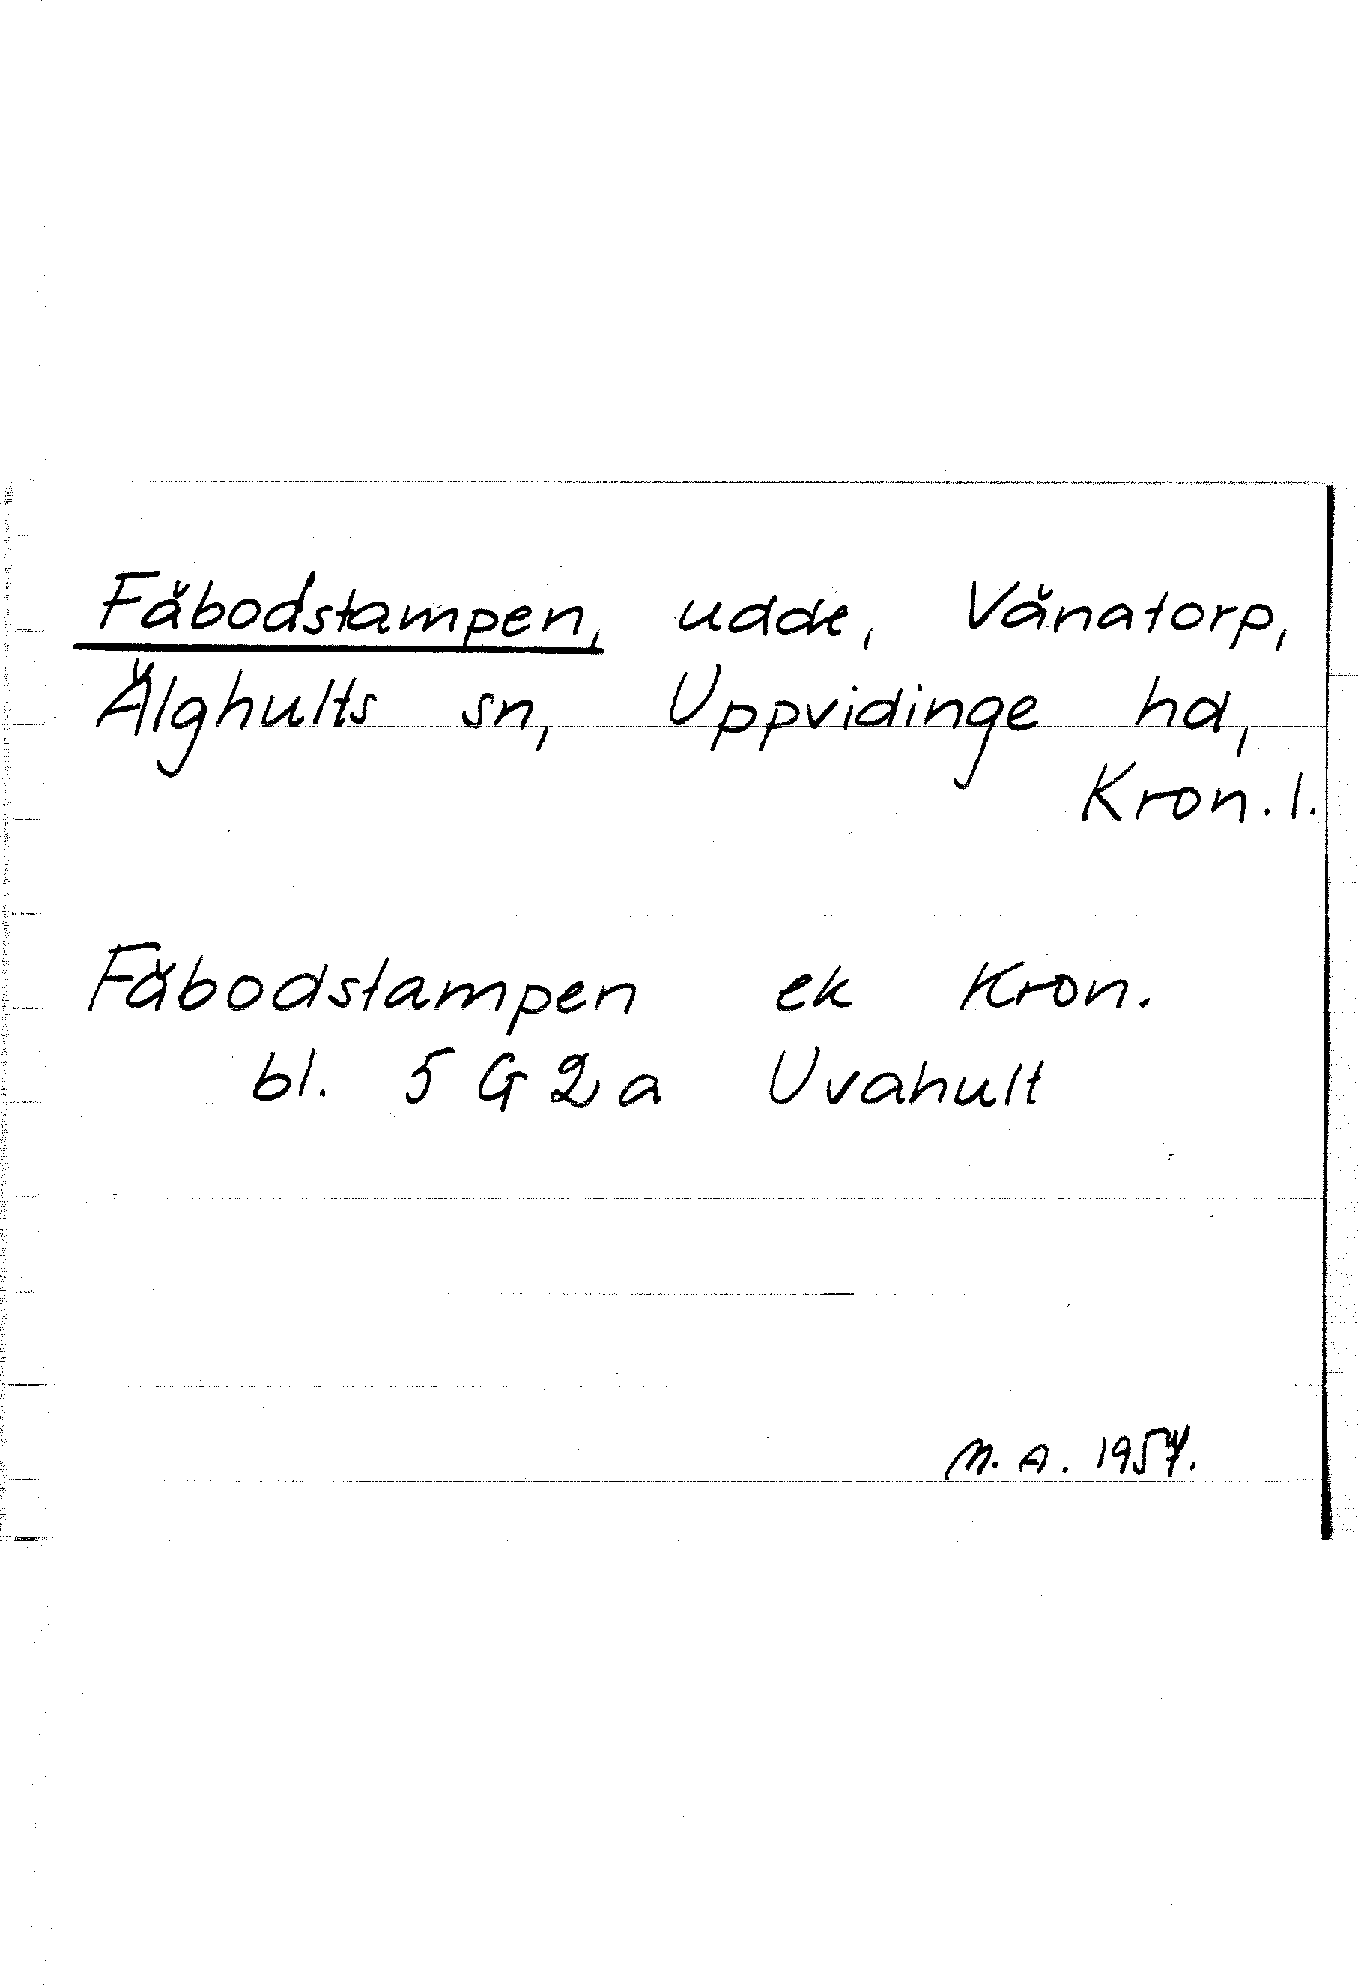 Fäbodstampen, udde, Vänatorp,
Älghults sn, Uppvidinge hd,
Kron. l.
Fäbodstampen ek Kron.
bl. 5 G 2 a Uvahult
M. A. 1957.